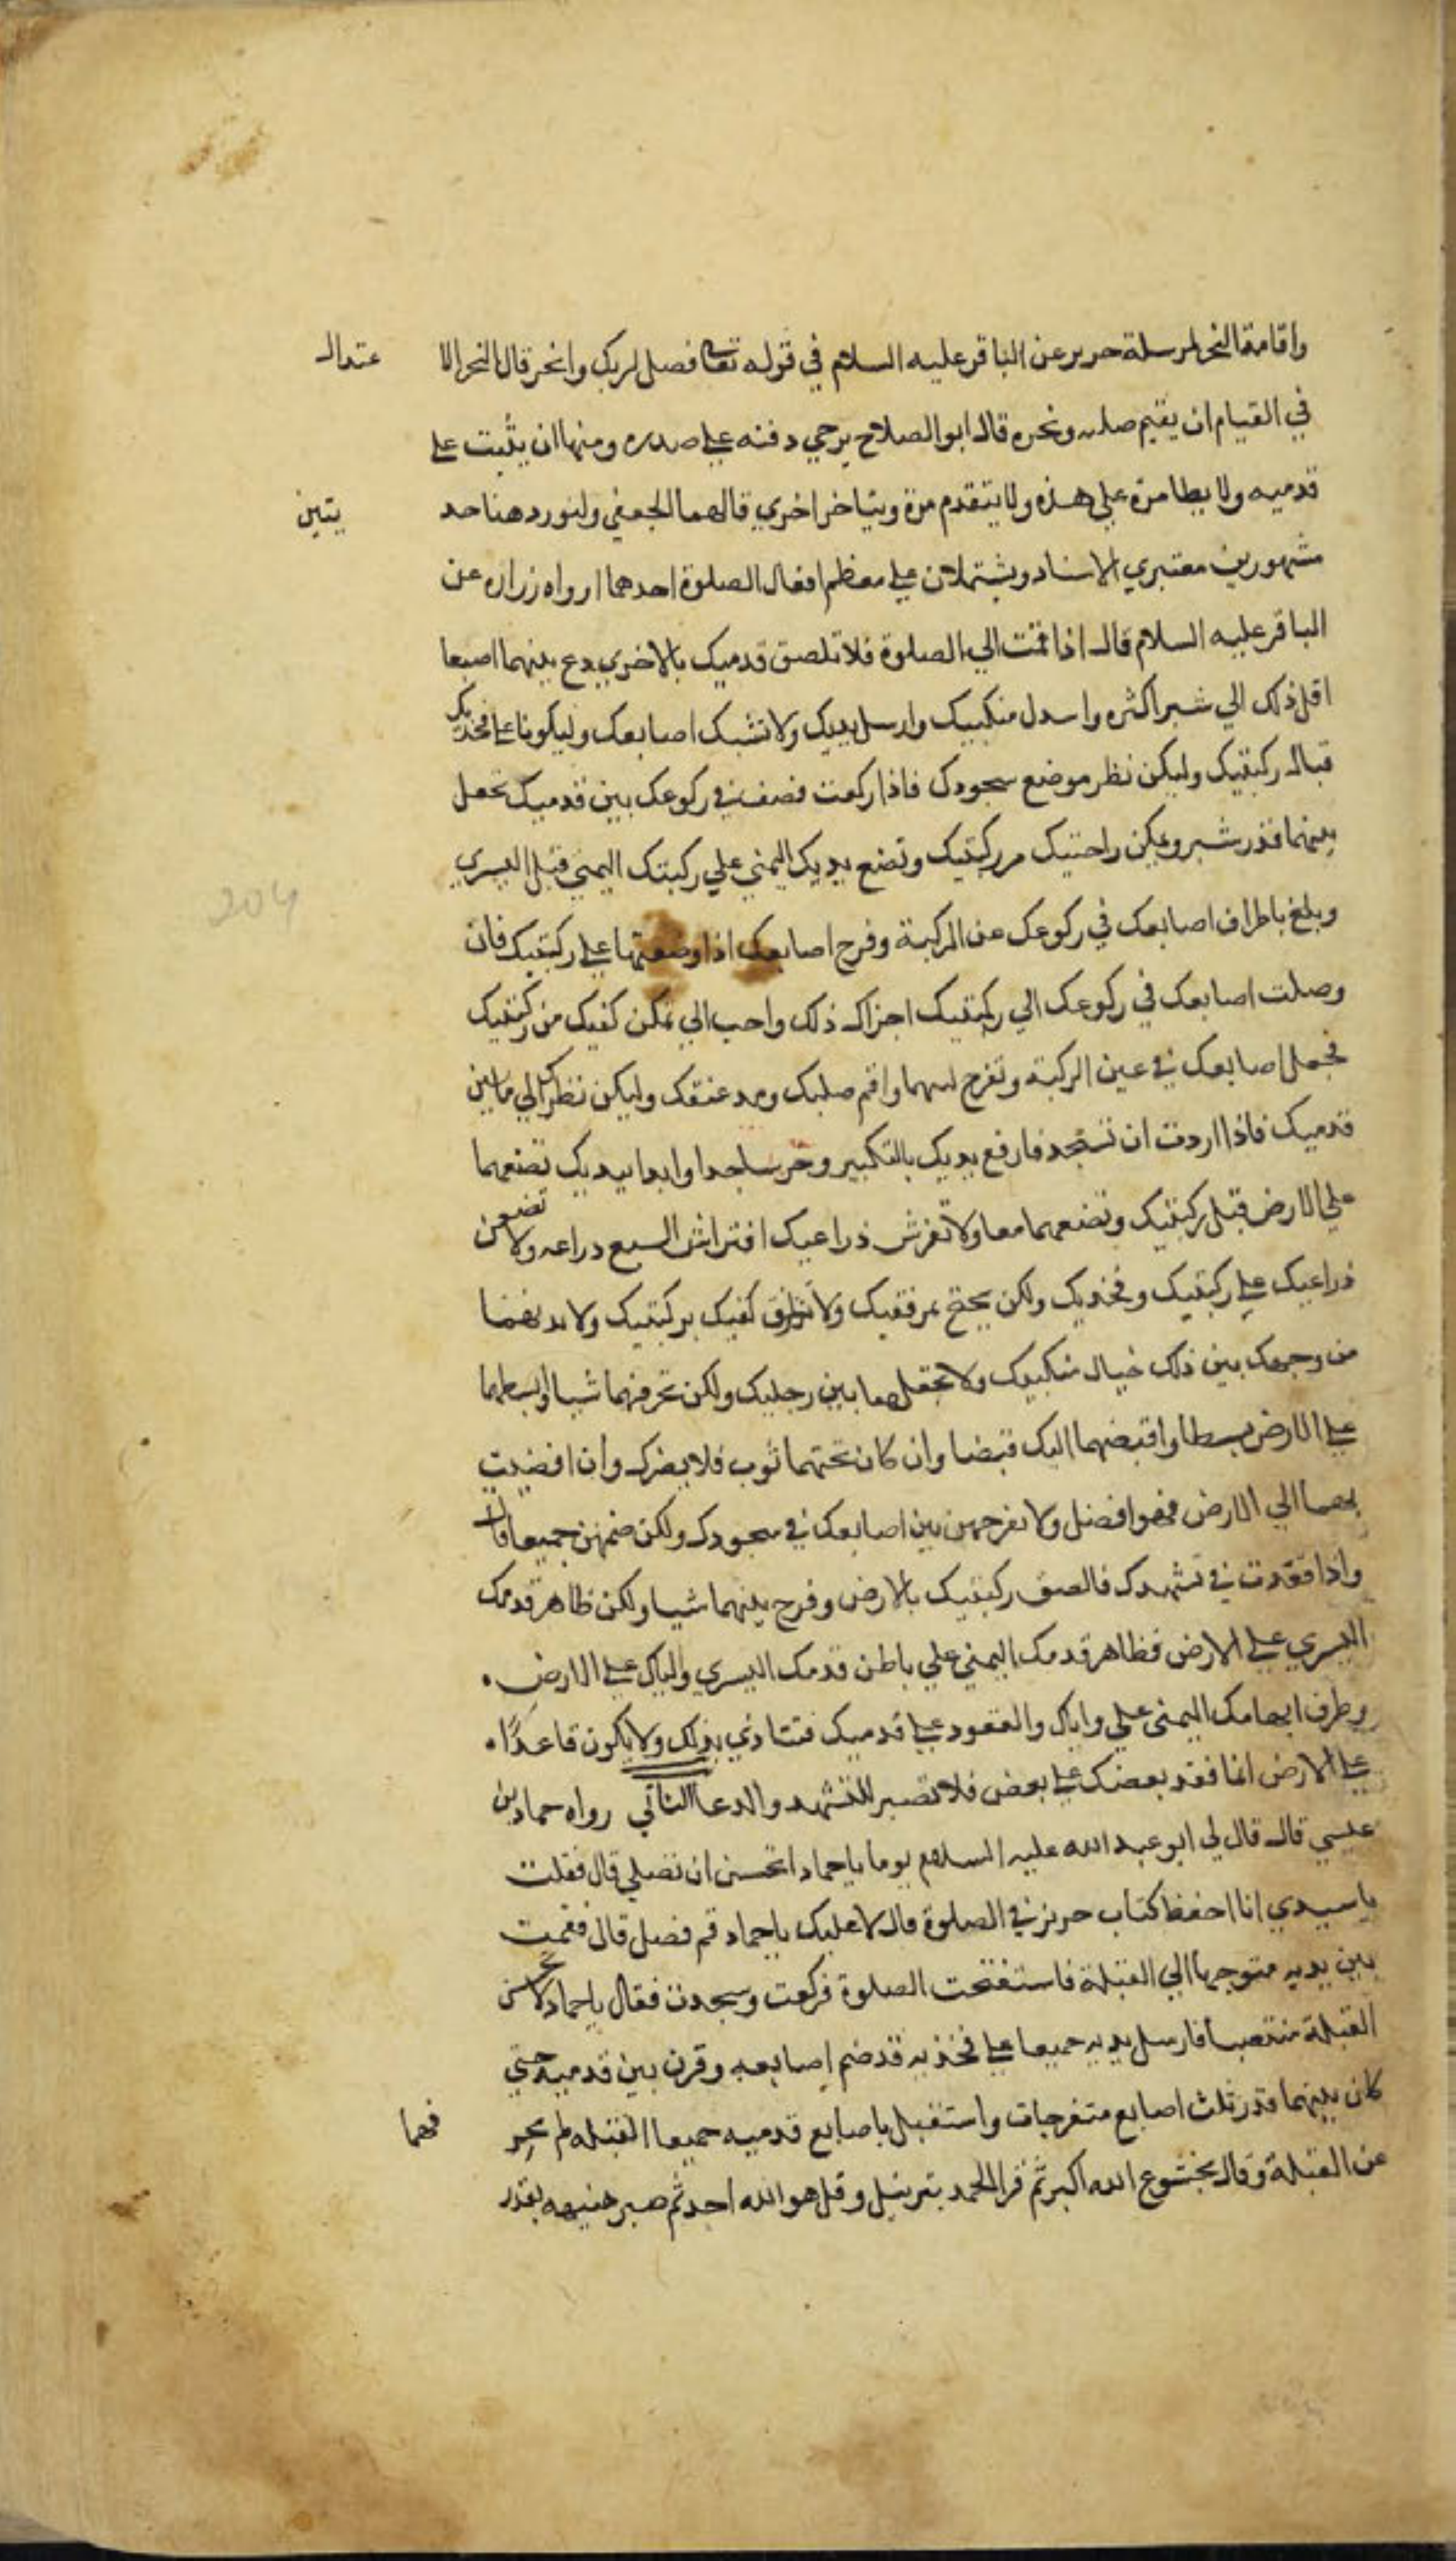 واقامة النحر لمرسلة حريز عن الباقر عليه السلام في قوله تعالى فصل لربك وانحر قال النحر الا عتدال
في القيام ان يقيم صلبه ونحره قال ابو الصلاح يرخي دقنه على صدره ومنها ان يثبت على
قدميه ولا يطا مرة على هذه ولا يتقدم مرة ويتاخر اخري قالهما الجعفي ولنورد هنا حد يثين
مشهورين معتبري الاسناد ويشتملان على معظم افعال الصلوة احدهما رواه زرارة عن
الباقر عليه السلام قال اذا قمت الي الصلوة فلا تلصق قدميك بالاخري دع بينهما اصبعا
اقل ذلك الي شبر اكثره واسدل منكبيك وارسل يديك ولا تشبك اصابعك وليكونا على فخذيك
قبال ركبتيك وليكن نظر موضع سجودك فاذا ركعت فصف في ركوعك بين قدميك تجعل
بينهما قدر شبر وتمكن راحتيك من ركبتيك وتضع يديك اليمني علي ركبتك اليمني قبل اليسري
وبلغ باطراف اصابعك في ركوعك عن الركبة وفرج اصابعك اذا وضعتها على ركبتيك فان
وصلت اصابعك في ركوعك الي ركبتيك اجزاك ذلك واحب الي تمكن كفيك من ركبتيك
فجعل اصابعك في عين الركبة وتفرج بينهما واقم صلبك ومد عنقك وليكن نظرك الي ما بين
قدميك فاذا اردت ان تسجد فارفع يديك بالتكبير وخر ساجدا وابدا بيديك تضعهما
علي الارض قبل ركبتيك وتضعهما معا ولا تفرش ذراعيك افتراش السبع دراعه ولا تضعن
ذراعيك على ركبتيك وفخذيك ولكن يجنح بمرفقيك ولا تلزق كفيك بركبتيك ولا
من وجهك بين ذلك خيال منكبيك ولا تجعلهما بين رجليك ولكن تحرفهما شيا وابسطهما
على الارض بسطا واقبضهما اليك قبضا وان كان تحتهما ثوب فلا يضرك وان افضيت
بهما الي الارض فهو افضل ولا تفرجهن بين اصابعك في سجودك ولكن ضمهن جميعا قال
واذا قعدت في تشهدك فالصق ركبتيك بالارض وفرج بينهما شيا ولكن ظاهر قدمك
اليسري على الارض فظاهر قدمك اليمني علي باطن قدمك اليسري والياك على الارض
وطرف ابهامك اليمني علي واياك والقعود على قدميك فتتاذي بذلك ولا يكون قاعدا
على الارض انما فقد بعضك على بعض فلا تصبر للتشهد والدعا الثاني رواه حماد بن
عيسي قال قال لي ابو عبد الله عليه السلام يوما يا حماد اتحسن ان تصلي قال فقلت
يا سيدي انا احفظ كتاب حريز في الصلوة قال لا عليك يا حماد قم فصل قال فقمت
بين يديه متوجها الي القبلة فاستفتحت الصلوة فركعت وسجدت فقال يا حماد لا تحسن
القبلة منتصبا فارسل يديه جميعا على فخذيه قد ضم اصابعه وقرن بين قدميه حتي
كان بينهما قدر ثلث اصابع متفرجات واستقبل باصابع قدميه جميعا القبله لم يحر فهما
عن القبلة وقال بخشوع الله اكبر ثم قرا الحمد بترتيل وقل هو الله احد ثم صبر هنيهه بقدر
204